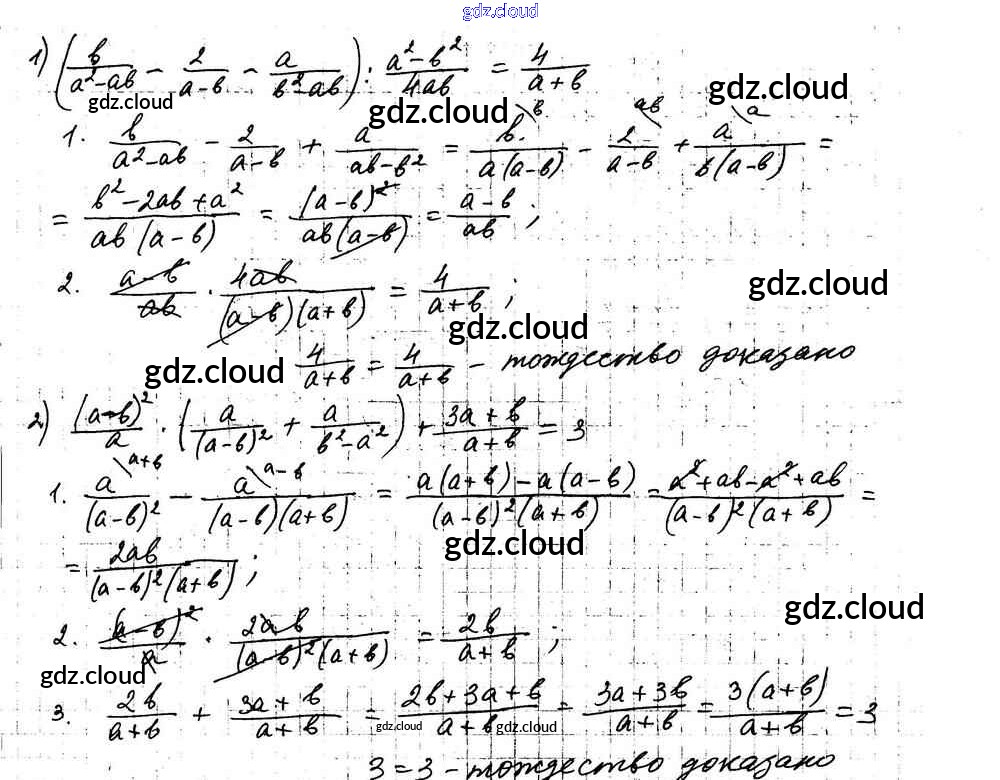 gdz.cloud
1) (b/(a²-ab) - 2/(a-b) - a/(b²-ab)) : (a²-b²)/(4ab) = 4/(a+b)
gdz.cloud gdz.cloud gdz.cloud
1. b/(a²-ab) - 2/(a-b) + a/(ab-b²) = b\b/(a(a-b)) - 2\ab/(a-b) + a\a/(b(a-b)) =
= (b²-2ab+a²)/(ab(a-b)) = (a-b)²/(ab(a-b)) = (a-b)/(ab);
2. (a-b)/(ab) · 4ab/((a-b)(a+b)) = 4/(a+b);
gdz.cloud
gdz.cloud
gdz.cloud
4/(a+b) = 4/(a+b) - тождество доказано
2) (a-b)²/a · (a/(a-b)² + a/(b²-a²)) + (3a+b)/(a+b) = 3
1. a\a+b/(a-b)² - a\a-b/((a-b)(a+b)) = (a(a+b)-a(a-b))/((a-b)²(a+b)) = (a²+ab-a²+ab)/((a-b)²(a+b)) =
gdz.cloud
= 2ab/((a-b)²(a+b));
gdz.cloud
2. (a-b)²/a · 2ab/((a-b)²(a+b)) = 2b/(a+b);
gdz.cloud
3. 2b/(a+b) + (3a+b)/(a+b) = (2b+3a+b)/(a+b) = (3a+3b)/(a+b) = 3(a+b)/(a+b) = 3
gdz.cloud gdz.cloud
3=3 - тождество доказано